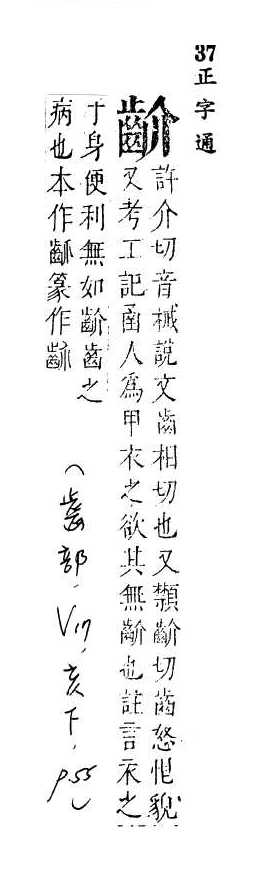 37正字通
齘
許介切音械說文齒相切也又顡齘切齒怒悒貌
又考工記函人爲甲衣之欲其無齘也註言衣之
于身便利無如齘齒之
病也本作齘篆作齘
(齒部, V17, 亥下, p.55)